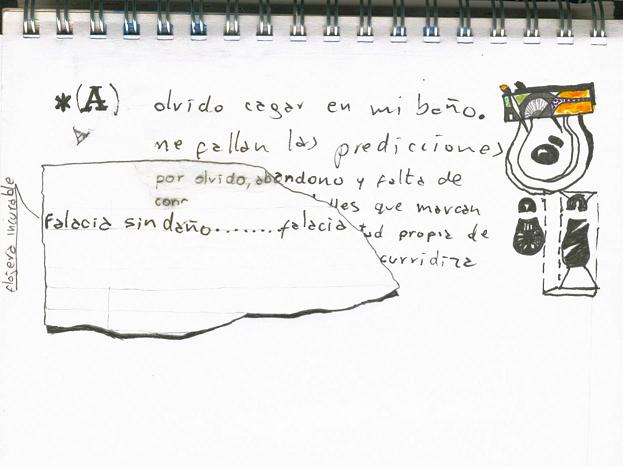 *(A) olvido cagar en mi baño.
me fallan las predicciones
por olvido, abandono y falta de
que marcan
falacia sin daño........falacia
propia de
flojera incurable